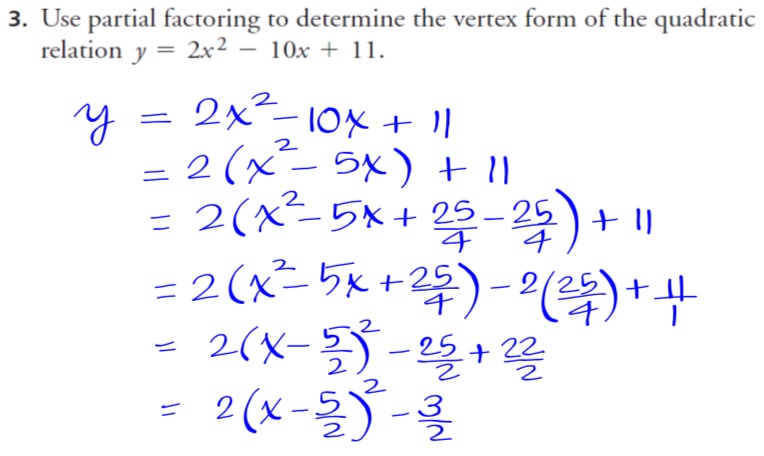 3. Use partial factoring to determine the vertex form of the quadratic
relation y = 2x² − 10x + 11.
y = 2x² − 10x + 11
= 2(x² − 5x) + 11
= 2(x² − 5x + 25/4 − 25/4) + 11
= 2(x² − 5x + 25/4) − 2(25/4) + 11/1
= 2(x − 5/2)² − 25/2 + 22/2
= 2(x − 5/2)² − 3/2